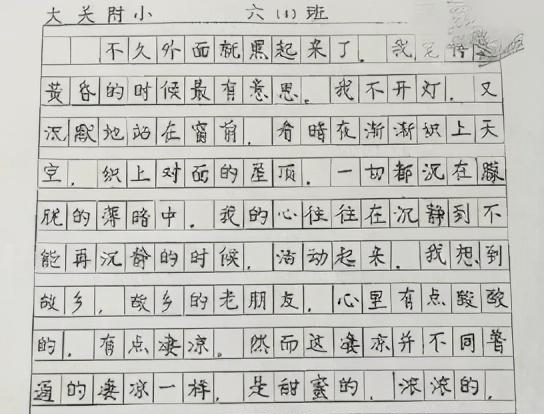 大关附小 六(1)班
不久外面就黑起来了。我觉得
黄昏的时候最有意思。我不开灯，又
沉默地站在窗前，看暗夜渐渐织上天
空，织上对面的屋顶。一切都沉在朦
胧的薄暗中。我的心往往在沉静到不
能再沉静的时候，活动起来。我想到
故乡，故乡的老朋友，心里有点酸酸
的，有点凄凉。然而这凄凉并不同普
通的凄凉一样，是甜蜜的，浓浓的，